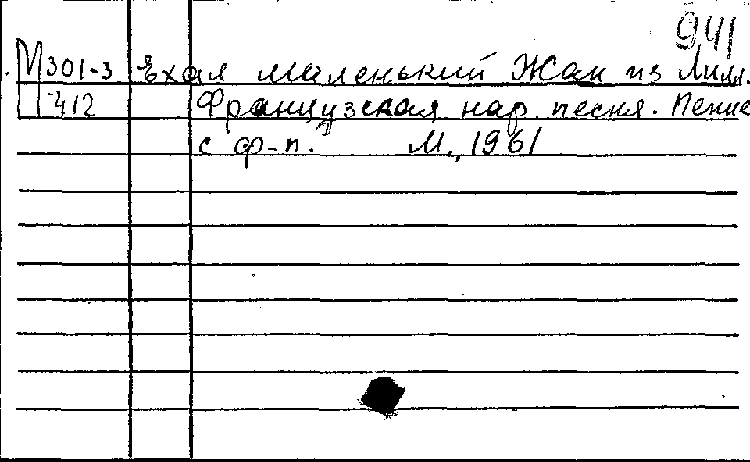 941
М301-3 Ехал маленький Жан из Лилл.
412 Французская нар. песня. Пение
с ф-п. М., 1961